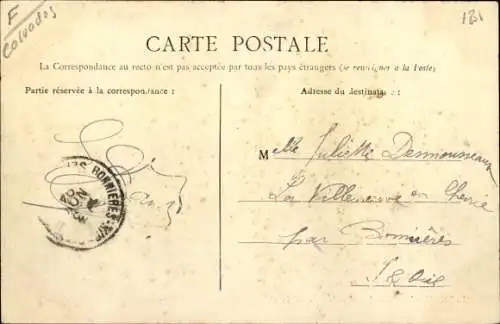 F
Calvados
131
CARTE POSTALE
La Correspondance au recto n'est pas acceptée par tous les pays étrangers (se renseigner à la Poste)
Partie réservée à la correspondance :
Adresse du destinataire :
Melle Juliette Desmousseaux
La Villeneuve en Chevrie
par Bonnières
S & Oise
BONNIÈRES